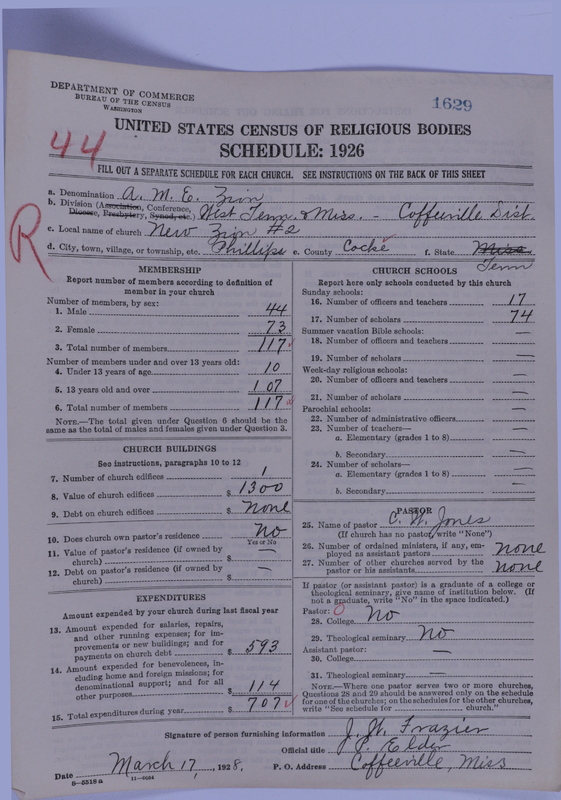 DEPARTMENT OF COMMERCE
BUREAU OF THE CENSUS
WASHINGTON
1629
44
UNITED STATES CENSUS OF RELIGIOUS BODIES
SCHEDULE: 1926
FILL OUT A SEPARATE SCHEDULE FOR EACH CHURCH. SEE INSTRUCTIONS ON THE BACK OF THIS SHEET
R
a. Denomination A. M. E. Zion
b. Division (Association, Conference, Diocese, Presbytery, Synod, etc.) West Tenn. & Miss. - Coffeeville Dist.
c. Local name of church New Zion #2
d. City, town, village, or township, etc. Phillips e. County Cocke f. State Miss Tenn
MEMBERSHIP
Report number of members according to definition of member in your church
Number of members, by sex:
1. Male 44
2. Female 73
3. Total number of members 117
Number of members under and over 13 years old:
4. Under 13 years of age 10
5. 13 years old and over 107
6. Total number of members 117
NOTE.—The total given under Question 6 should be the same as the total of males and females given under Question 3.
CHURCH BUILDINGS
See instructions, paragraphs 10 to 12
7. Number of church edifices 1
8. Value of church edifices $ 1300
9. Debt on church edifices $ none
10. Does church own pastor's residence? No
Yes or No
11. Value of pastor's residence (if owned by church) $ —
12. Debt on pastor's residence (if owned by church) $ —
EXPENDITURES
Amount expended by your church during last fiscal year
13. Amount expended for salaries, repairs, and other running expenses; for improvements or new buildings; and for payments on church debt $ 593
14. Amount expended for benevolences, including home and foreign missions; for denominational support; and for all other purposes $ 114
15. Total expenditures during year $ 707
CHURCH SCHOOLS
Report here only schools conducted by this church
Sunday schools:
16. Number of officers and teachers 17
17. Number of scholars 74
Summer vacation Bible schools:
18. Number of officers and teachers —
19. Number of scholars —
Week-day religious schools:
20. Number of officers and teachers —
21. Number of scholars —
Parochial schools:
22. Number of administrative officers —
23. Number of teachers—
a. Elementary (grades 1 to 8) —
b. Secondary —
24. Number of scholars—
a. Elementary (grades 1 to 8) —
b. Secondary —
PASTOR
25. Name of pastor C. W. Jones
(If church has no pastor, write "None")
26. Number of ordained ministers, if any, employed as assistant pastors none
27. Number of other churches served by the pastor or his assistants none
If pastor (or assistant pastor) is a graduate of a college or theological seminary, give name of institution below. (If not a graduate, write "No" in the space indicated.)
Pastor: 0
28. College No
29. Theological seminary No
Assistant pastor:
30. College —
31. Theological seminary —
NOTE.—Where one pastor serves two or more churches, Questions 28 and 29 should be answered only on the schedule for one of the churches; on the schedules for the other churches, write "See schedule for church."
Signature of person furnishing information J. W. Frazier
Official title P. Elder
Date March 17, 1928. P. O. Address Coffeeville, Miss
8-5518a 11-9034